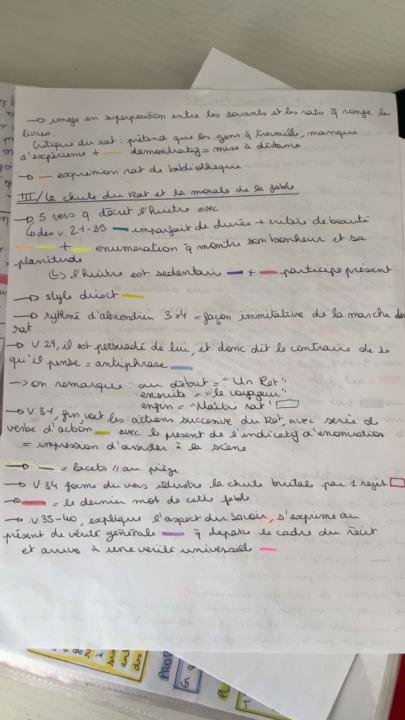 → image en superposition entre les savants et les rats q̄ ronge les
livres
Critique du rat : prétend que les gens q̄ travaille, manque
d'expérience + démonstratif = mise à distance
→ expression rat de bibliothèque
III/ La chute du Rat et la morale de la fable
→ 5 vers q décrit l'huitre avec
des v. 21-25 imparfait de durée + critère de beauté
+ enumeration q̄ montre son bonheur et sa
planitude
↳ l'huitre est sedentaire + participe présent
→ style direct
→ rythme d'alexandrin 3x4 = façon immitative de la marche du
rat
→ V 29, il est persuadé de lui, et donc dit le contraire de ce
qu'il pense = antiphrase
→ on remarque : au début = "Un Rat"
ensuite = "le voyageur"
enfin = "Maître rat"
→ V 31, fin voit les actions succesive du Rat, avec série de
verbe d'action avec le présent de l'indicatif d'énonciation
= impression d'assister à la scène
→ = lacets // au piège
→ V 34 forme du vers illustre la chute brutale par 1 rejet
→ = le dernier mot de cette fable
→ V 35-40, explique l'aspect du savoir, s'exprime au
présent de vérité générale q̄ dépasse le cadre du récit
et arrive à une verité universelle